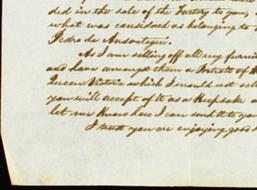 ded in the sale of the Factory to you,
what was considered as belonging to
Pedro de Ansoategui.
As I am selling off all my furni
and have amongst them a Portrait of
Queen Victoria which I would not sell
you will accept of it as a Keepsake
let me know how I can send it to you
I trust you are enjoying good